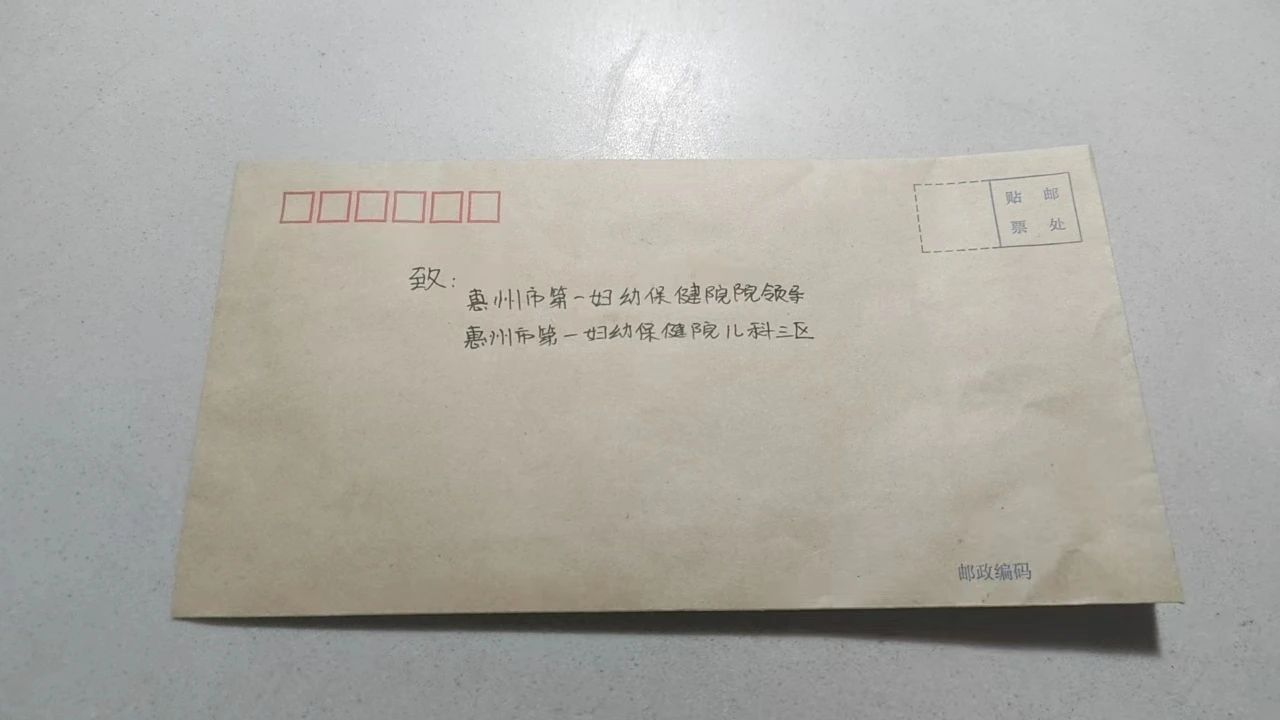 贴 邮
票 处
致：
惠州市第一妇幼保健院院领导
惠州市第一妇幼保健院儿科三区
邮政编码